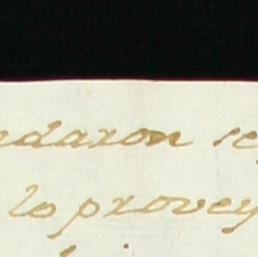 ndaron se
lo provey